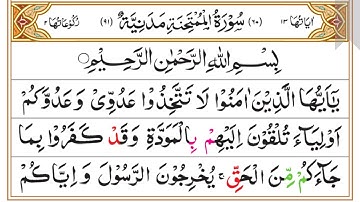 اٰیَاتُهَا ١٣ (٦٠) سُوْرَةُ الْمُمْتَحِنَةِ مَدَنِيَّةٌ (٩١) رُكُوْعَاتُهَا ٢
بِسْمِ اللّٰهِ الرَّحْمٰنِ الرَّحِيْمِ
يٰۤاَيُّهَا الَّذِيْنَ اٰمَنُوْا لَا تَتَّخِذُوْا عَدُوِّيْ وَعَدُوَّكُمْ
اَوْلِيَآءَ تُلْقُوْنَ اِلَيْهِمْ بِالْمَوَدَّةِ وَقَدْ كَفَرُوْا بِمَا
جَآءَكُمْ مِّنَ الْحَقِّ ۚ يُخْرِجُوْنَ الرَّسُوْلَ وَاِيَّاكُمْ